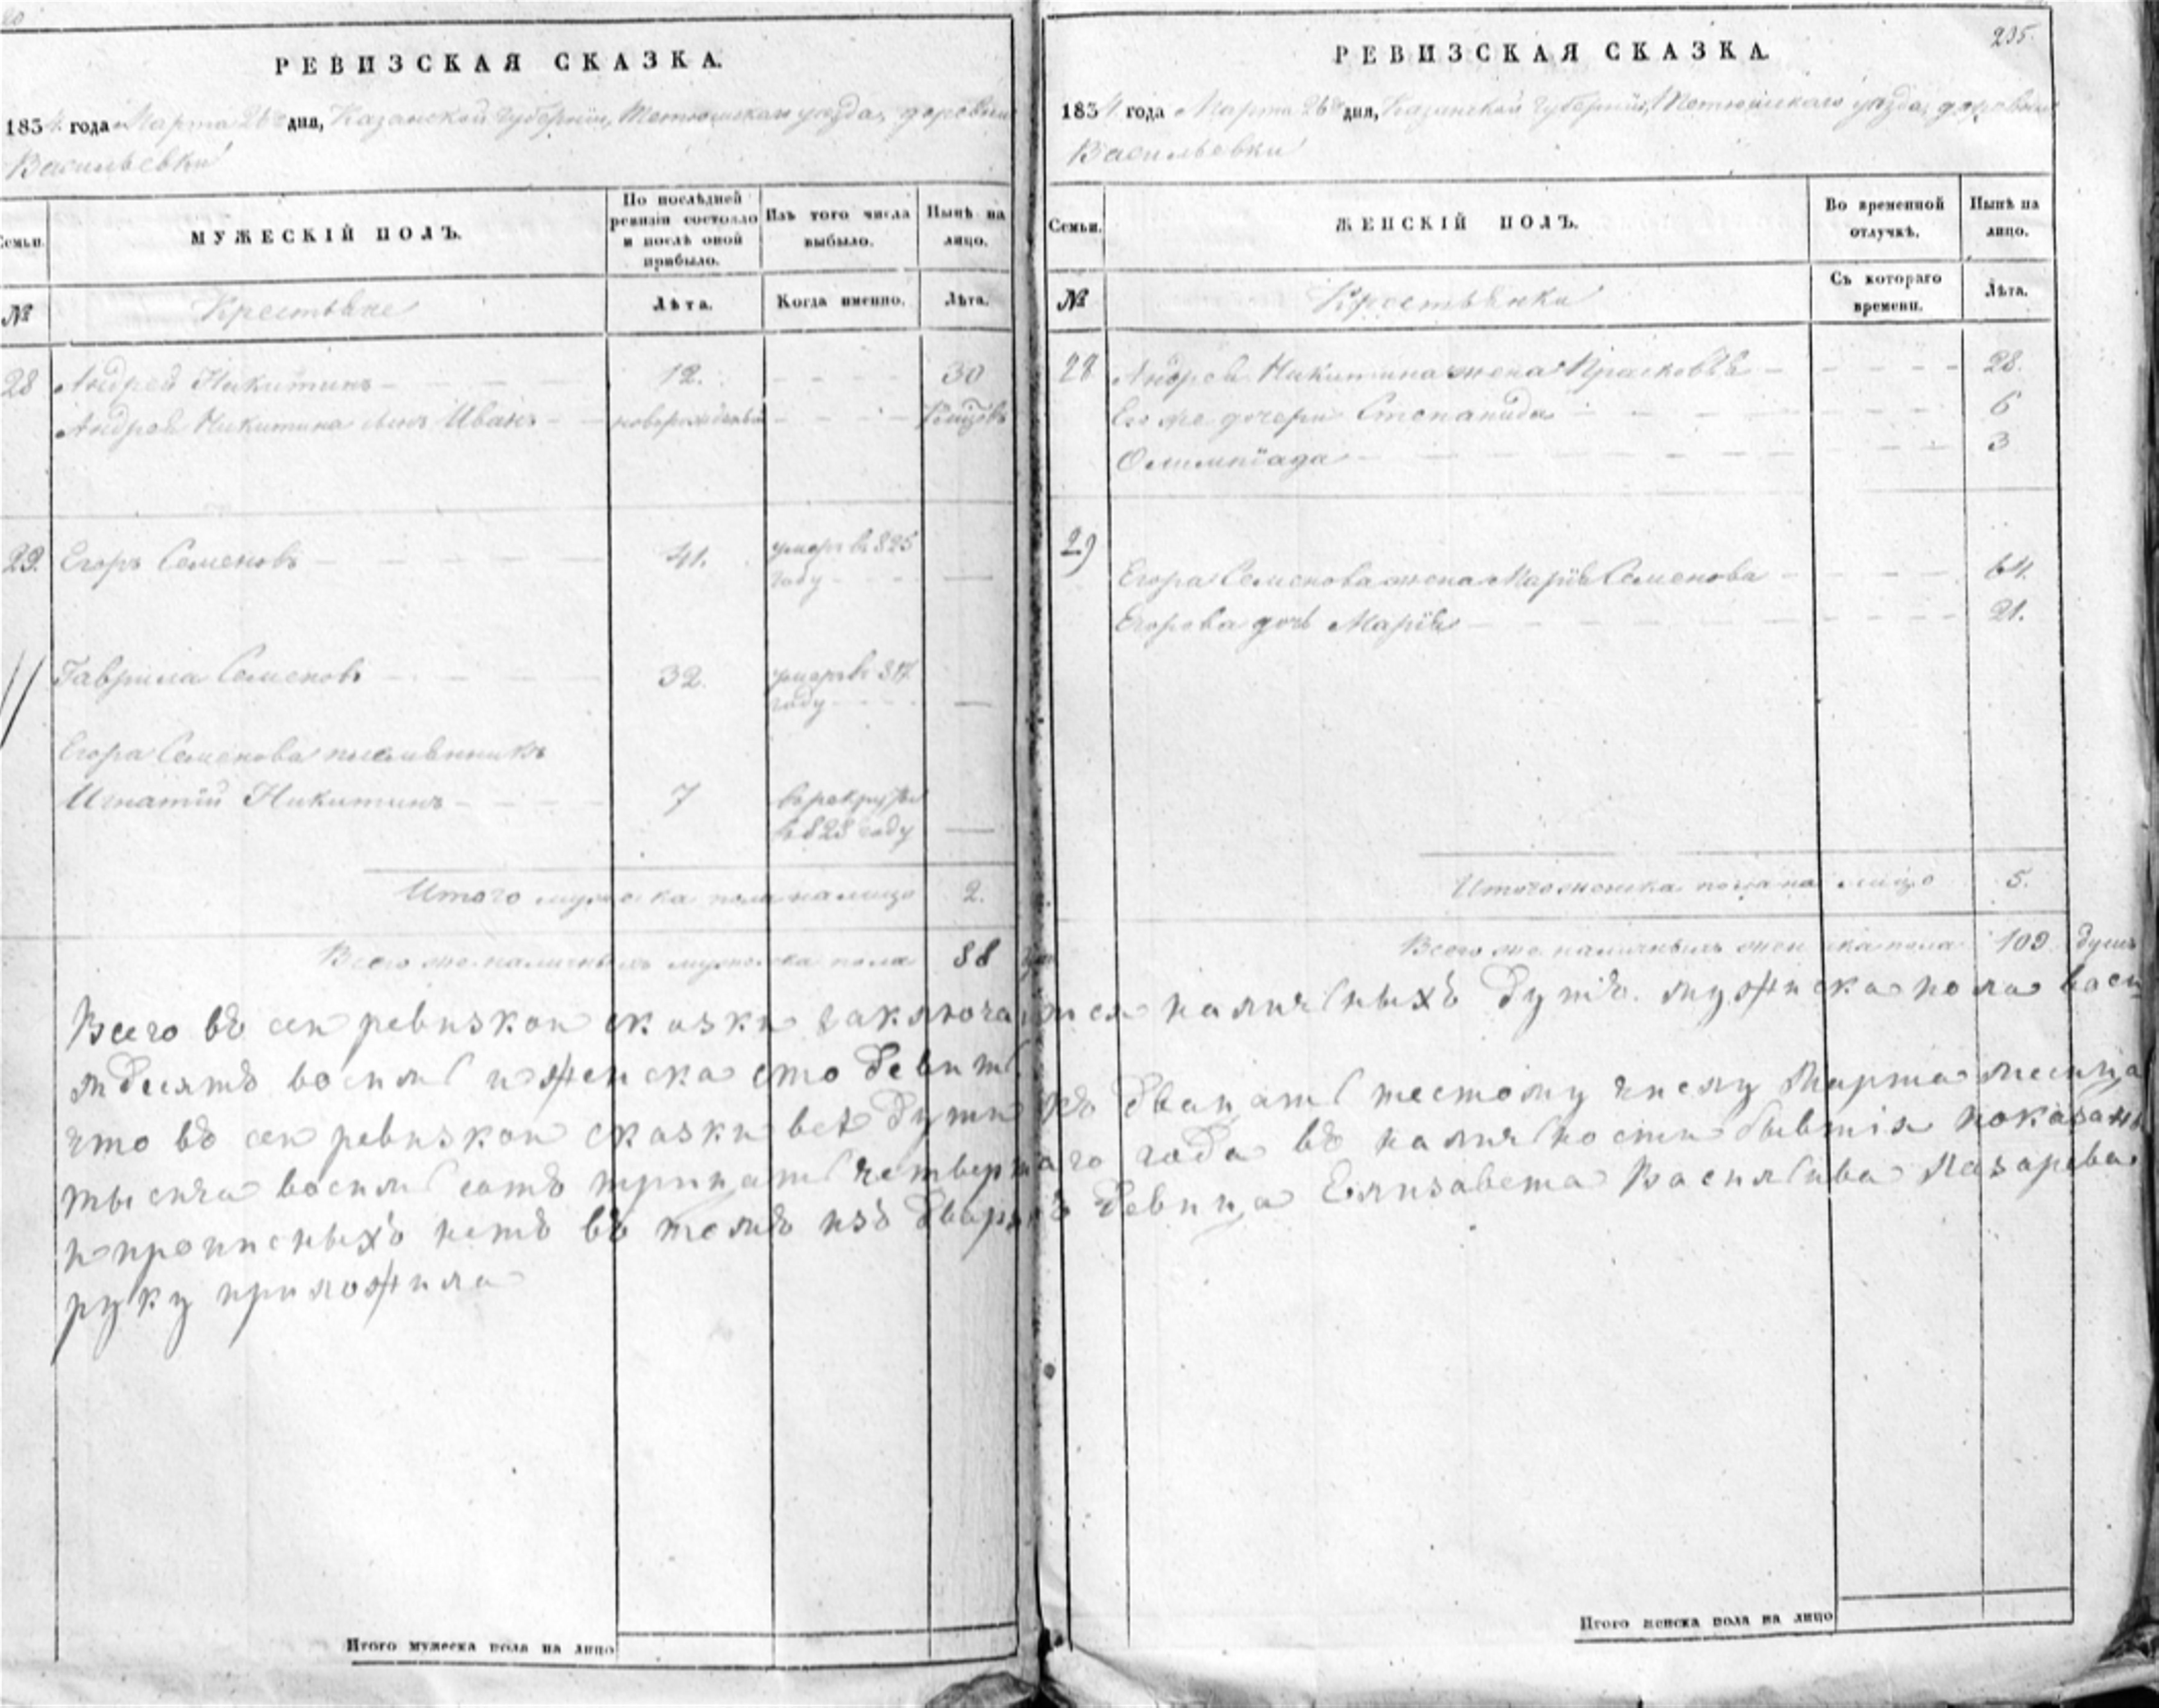 РЕВИЗСКАЯ СКАЗКА.
1834 года Марта 26го дня, Казанской Губернии, Тетюшскаго уезда, деревни
Васильевки
Семьи.
МУЖЕСКІЙ ПОЛЪ.
По послѣдней ревизіи состояло и послѣ оной прибыло.
Изъ того числа выбыло.
Нынѣ на лицо.
№
Крестьяне
Лѣта.
Когда именно.
Лѣта.
28 Андрей Никитинъ 12. 30
Андрея Никитина сынъ Иванъ новорожденый
29. Егоръ Семеновъ 41. умеръ въ 825
году
Гаврила Семеновъ 32. умеръ въ 817
году
Егора Семенова племянникъ
Игнатій Никитинъ 7 въ рекруты
въ 828 году
Итого мужеска пола на лицо 2.
Всего же наличныхъ мужеска пола 88
Итого мужеска пола на лицо
РЕВИЗСКАЯ СКАЗКА.
235.
1834 года Марта 26го дня, Казанской Губерніи, Тетюшскаго уезда, деревни
Васильевки
Семьи.
ЖЕНСКІЙ ПОЛЪ.
Во временной отлучкѣ.
Нынѣ на лицо.
№
Крестьянки
Съ котораго времени.
Лѣта.
28 Андрея Никитина жена Прасковья 28.
Его же дочери Степанида 6
Олимпіада 3
29 Егора Семенова жена Марія Семенова 64.
Егорова дочь Марія 21.
Итого женска пола на лицо 5.
Всего же наличныхъ женска пола 109 душъ
Всего въ сеи ревизкои скаски заключаитса наличныхъ душъ. мужиска пола васи
мдисятъ восимь и женска сто девить
что въ сеи ревизкои скаски все души къ двацать шестому числу Марта месица
тысича восимь сотъ трицать четвертаго года въ наличности бывшія показаны
и прописныхъ нетъ въ томъ изъ дварянъ девица Елизавета Васильива Лазарева
руку приложила
Итого женска пола на лицо